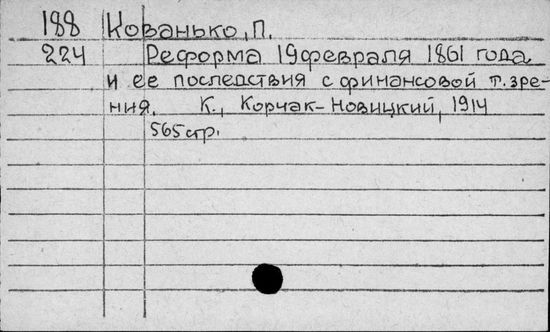 188 Кованько, П.
224 Реформа 19 февраля 1861 года
и ее последствия с финансовой т. зре-
ния. К., Корчак-Новицкий, 1914
565 стр.